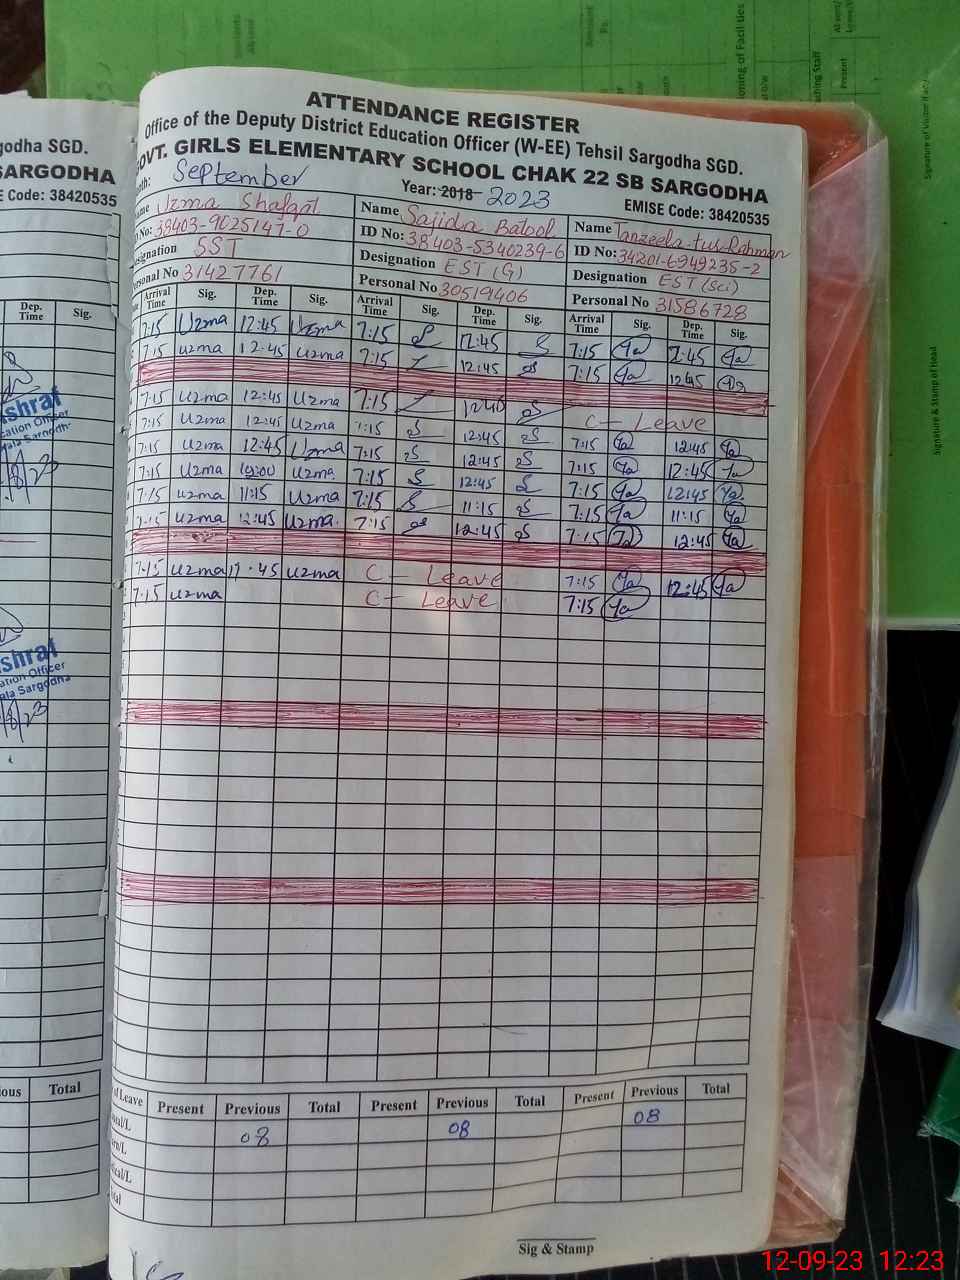 ATTENDANCE REGISTER
Office of the Deputy District Education Officer (W-EE) Tehsil Sargodha SGD.
OVT. GIRLS ELEMENTARY SCHOOL CHAK 22 SB SARGODHA
September Year: 2018 2023 EMISE Code: 38420535
Name Uzma Shafqat Name Sajida Batool Name Tanzeela-tus-Rahman
ID No: 38403-9025147-0 ID No: 38403-5340239-6 ID No: 34201-6949235-2
Designation SST Designation EST (G) Designation EST (Sci)
Personal No 31427761 Personal No 30519406 Personal No 31586728
Arrival Time Sig. Dep. Time Sig. Arrival Time Sig. Dep. Time Sig. Arrival Time Sig. Dep. Time Sig.
7:15 Uzma 12:45 Uzma 7:15 12:45 7:15 12:45
7:15 uzma 12:45 uzma 7:15 12:45 7:15 12:45
7:15 uzma 12:45 Uzma 7:15 12:45 C - Leave
7:15 uzma 12:45 uzma 7:15 12:45 7:15 12:45
7:15 uzma 12:45 Uzma 7:15 12:45 7:15 12:45
7:15 uzma uzma 7:15 12:45 7:15 12:45
7:15 uzma 11:15 uzma 7:15 11:15 7:15 11:15
7:15 uzma 12:45 uzma 7:15 12:45 7:15 12:45
7:15 uzma 45 uzma C - Leave 7:15 12:45
7:15 uzma C - Leave 7:15
of Leave Present Previous Total Present Previous Total Present Previous Total
08 08 08
Sig & Stamp
godha SGD.
SARGODHA
E Code: 38420535
Dep. Time Sig.
shraf
cation Officer
shraf
ation Officer
ala Sargodha
ious Total
Signature & Stamp of Head
Signature of Visitor if any
Present
12-09-23 12:23